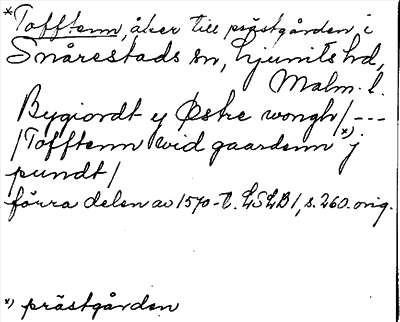 *Tofftenn, åker till prästgården i
Snårestads sn, Ljunits hd,
Malm. l.
Bygiordt ej Østre wongh/---
/Tofftenn wid gaardenn x) j
pundt/
förra delen av 1570-t. LSLB 1, s. 260. orig.
x) prästgården